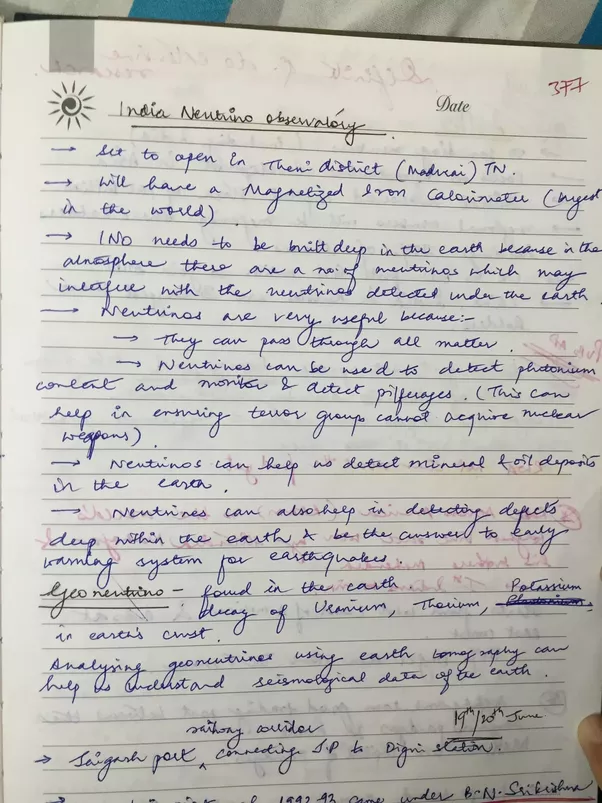 377
Date
India Neutrino Observatory
→ Set to open in Theni district (Madurai) TN.
→ Will have a Magnetized Iron Calorimeter (largest
in the world)
→ INO needs to be built deep in the earth because in the
atmosphere there are a no. of neutrinos which may
interfere with the neutrinos detected under the earth
→ Neutrinos are very useful because:-
→ They can pass through all matter.
→ Neutrinos can be used to detect plutonium
content and monitor & detect pilferages. (This can
help in ensuring terror groups cannot acquire nuclear
weapons)
→ Neutrinos can help us detect mineral & oil deposits
in the earth.
→ Neutrinos can also help in detecting defects
deep within the earth & be the answer to early
warning system for earthquakes.
Geoneutrino - found in the earth
decay of Uranium, Thorium, Potassium
in earth's crust.
Analysing geoneutrinos using earth tomography can
help us understand seismological data of the earth.
19th/20th June
railway corridor
→ Jaigarh port, connecting J.P to Digni station.
1992-93 came under B.N. Srikrishna